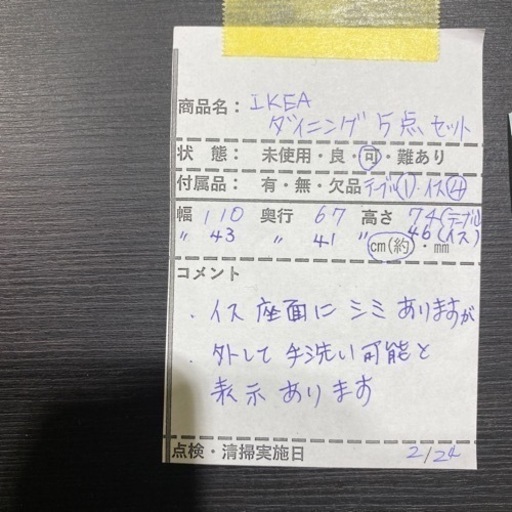 商品名： IKEA
ダイニング 5点セット
状　態： 未使用・良・可・難あり
付属品： 有・無・欠品 テーブル① ・イス④
幅 110 奥行 67 高さ 74(テーブル)
〃 43 〃 41 〃 46(イス)
cm(約)・mm
コメント
・イス座面にシミありますが
・外して手洗い可能と
表示あります
点検・清掃実施日 2/24